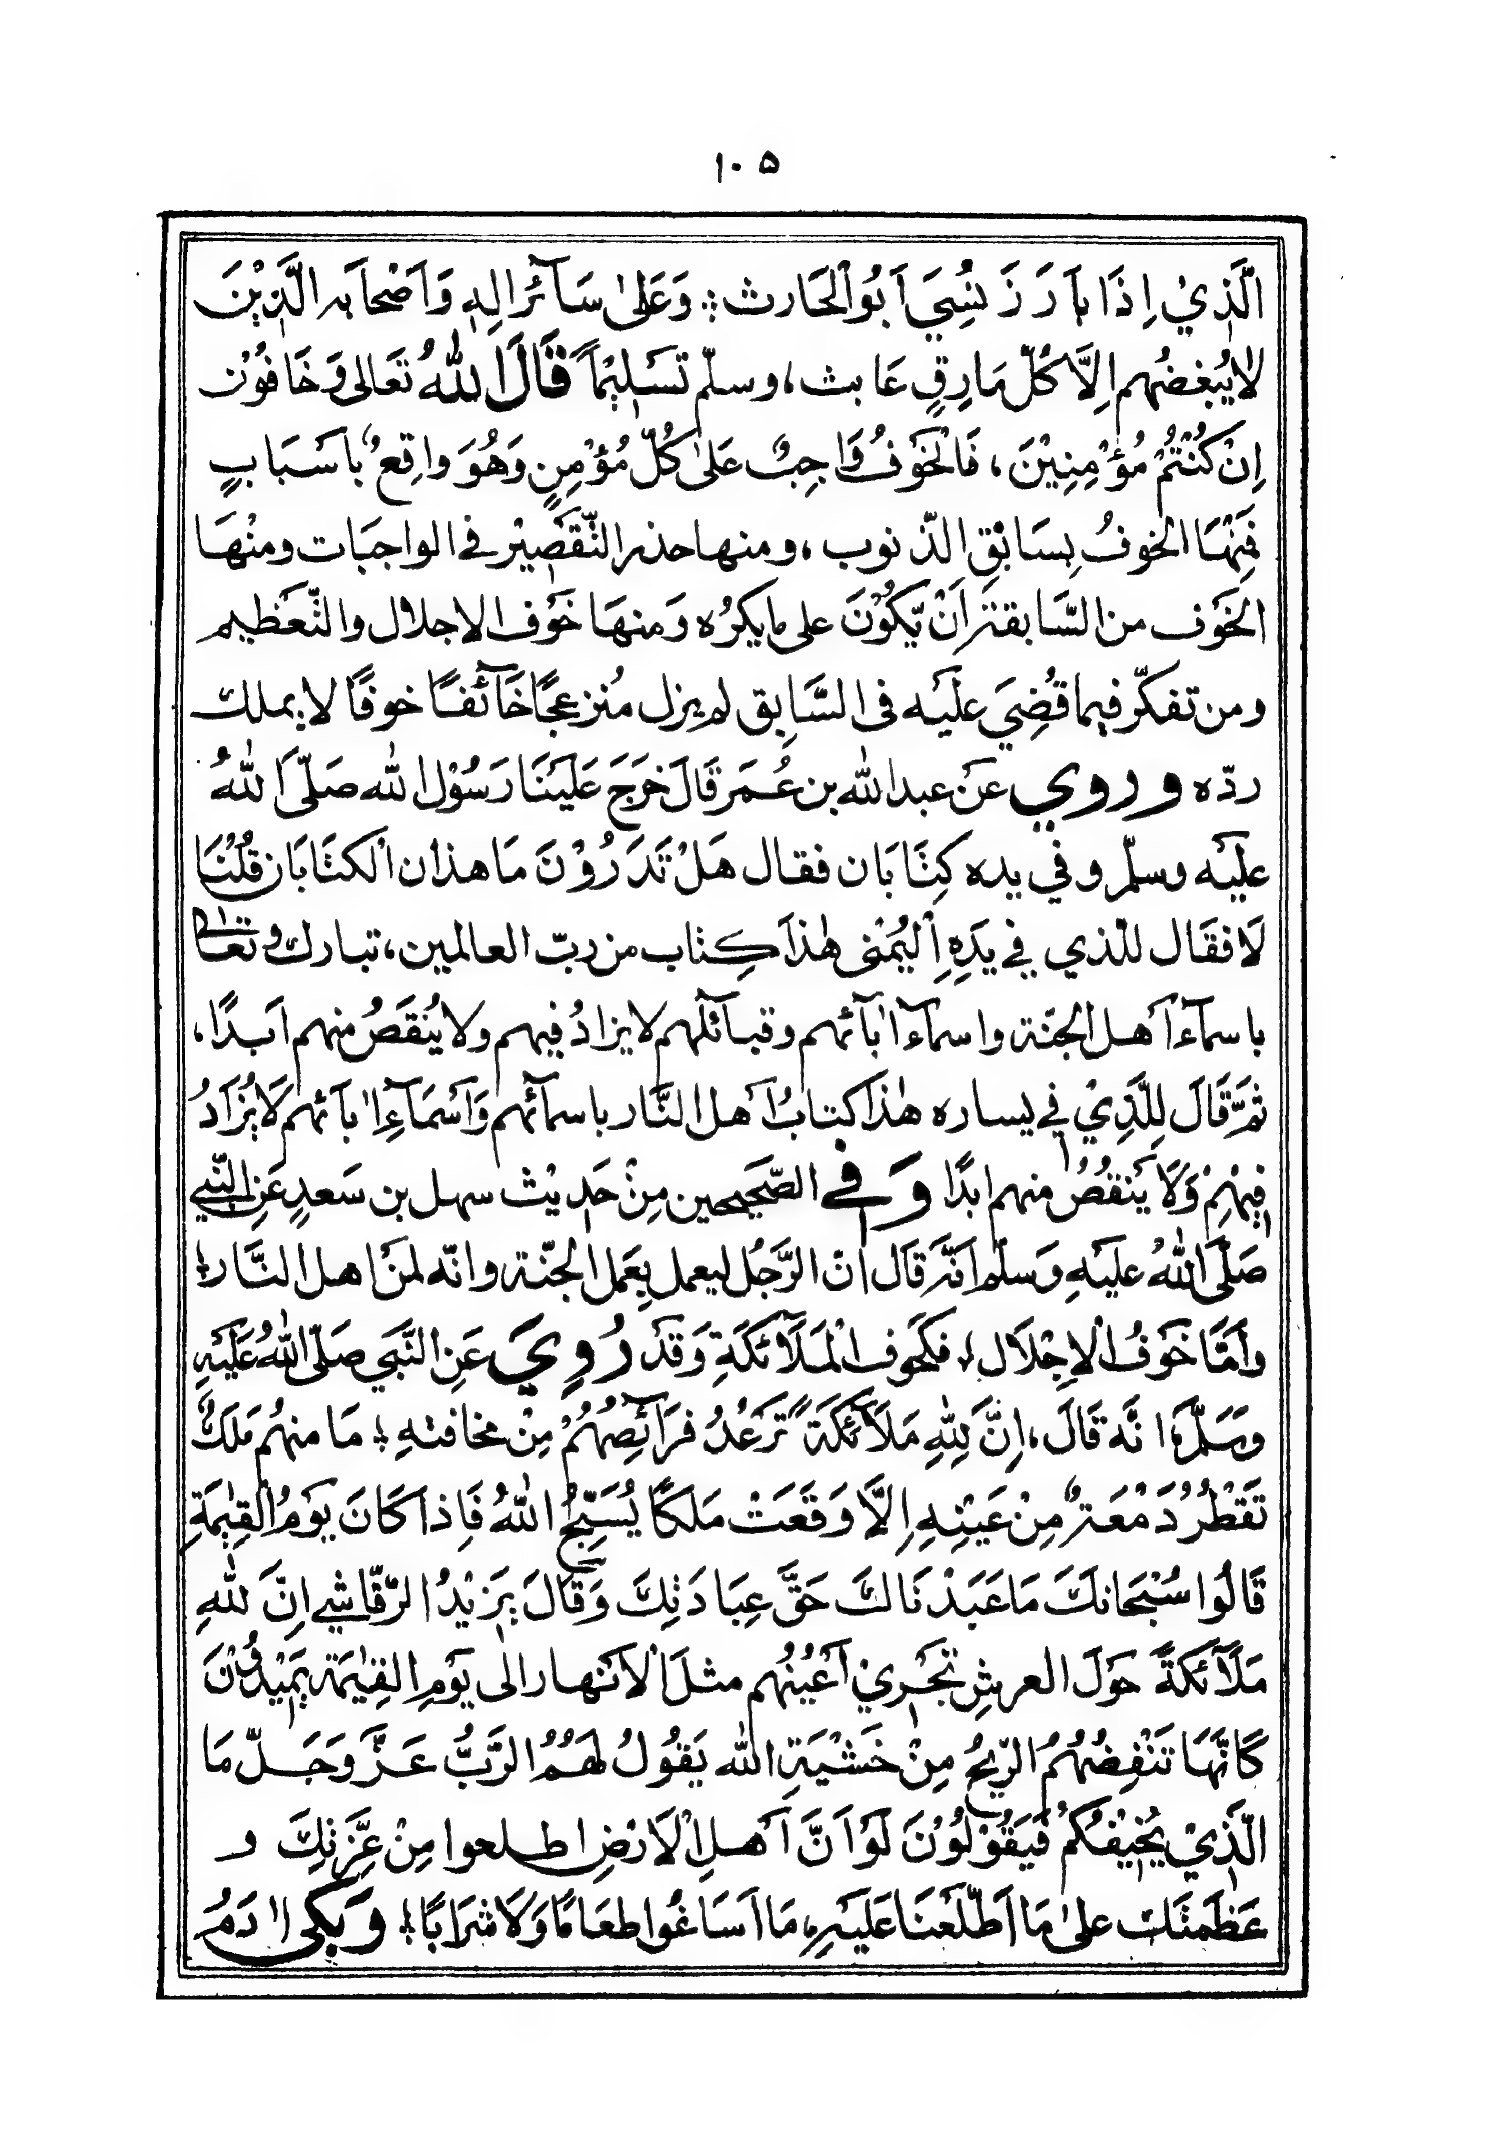 ١٠٥
الَّذِيْ اِذَا بَارَزَ نُسِيَ اَبُو الْحَارث ؞ وَعَلىٰ سَآئر اٰلِهٖ وَاَصْحَابہ الَّذِيْنَ
لَا يُبْغضُهم اِلَّا كُلّ مَارِقٍ عَابث، وسلّم تسَلِيْمًا قَالَ اللهُ تَعَالى وَخَافُوْن
اِنْ كُنْتُمْ مُؤْمِنِيْنَ، فَالْخَوْفُ وَاجِبٌ عَلىٰ كُلّ مُؤْمِنٍ وَهُوَ واقِعٌ باَسْبَابٍ
فَمِنْهَا الخوفُ بِسَابِقِ الذّنوب، ومنها حذر التَّقْصِيْرِ في الواجبَات ومنْهَا
الخَوْف من السَّابقة اَنْ يّكُوْنَ على ما يكرُه وَمنهَا خَوْف الاجلال والتَّعْظيم
ومن تفكّر فيما قُضِيَ عليْه فى السَّابِق لم يزل مُنزعجًا خَآئفًا خوفًا لا يملك
ردّه وروي عَنْ عبد الله بن عُمَر قَالَ خَرَجَ عَلَيْنَا رَسُوْل الله صَلّى اللهُ
عليْه وسلّم وفي يده كِتَابَان فقال هَلْ تَدَرُوْنَ مَا هذان الكتَابَان قُلْنَا
لَا فقَال للّذي في يَدِهِ الْيُمْنى هٰذَا كِتاب من ربّ العالمين، تبارك وتعَالىٰ
باسمآء اَهل الجنّة واسمآء اٰبآئهم وقبآئلهم لا يزادُ فيهم ولا يُنقَصُ منهم اَبدًا،
ثمَّ قَالَ لِلَّذِيْ في يساره هٰذا كتابُ اَهل النَّار باسمآئهم وَاَسْمَآءِ اٰبآئهم لَا يُزَادُ
فِيْهِمْ وَلَا يُنقصُ منهم ابدًا وَفي الصّحِيحين مِنْ حَديث سهل بن سَعدٍ عَنِ النّبي
صَلّى اللهُ عليْهِ وَسلّم اَنَّہ قَال اِنّ الرَّجُل ليعمل بِعَمل الجنّة وانّه لمنْ اهل النَّار؛
واَمَّا خَوْفُ الْاِجْلَال، فكَخوف المَلَآئكَةِ وَقَدْ رُوِيَ عَنِ النَّبي صَلّى اللهُ عَلَيْهِ
وَسَلَّمَ اَنَّه قَالَ، اِنَّ لِلّٰهِ مَلَآئِكَةً تَرْعَدُ فَرَآئِصُهُمْ مِنْ مخافتهِ ؛ مَا منهُم مَلَكٌ
تَقْطُرُ دَمْعَةٌ مِنْ عَيْنِهِ اِلَّا وَقَعَتْ مَلَكًا يُسَبِّحُ اللهَ فَاِذَا كَانَ يَوْمُ الْقِيٰمَةِ
قَالُوا سُبْحَانكَ مَا عَبَدْنَالكَ حَقَّ عِبَادَتِكَ وَقَالَ يَزيْدُ الرّقّاشي اِنَّ لِلّٰهِ
مَلَآئكَةً حَوْلَ العرشِ تَجْرِيْ اَعْيُنُهم مثلَ الْاَنهار الى يَوْمِ الْقِيٰمَة يَمِيْدُوْنَ
كَانّهَا تَنْفِضُهُمُ الرِّيْحُ مِنْ خَشْيَةِ الله يَقولُ لَهُمُ الرَّبُّ عَزَّ وَجَلّ مَا
الَّذِيْ يُخِيْفكُمْ فَيَقُوْلُوْنَ لَوْ اَنَّ اَهلَ الْاَرْضِ اطلعوا مِنْ عِزَّتِكَ وَ
عَظَمَتكَ علىٰ مَا اَطْلَعْتَنَا عَلَيْہِ، مَا اَسَاغُوا طعَامًا وَلَا شرَابًا؛ وبَكى اٰدَمُ